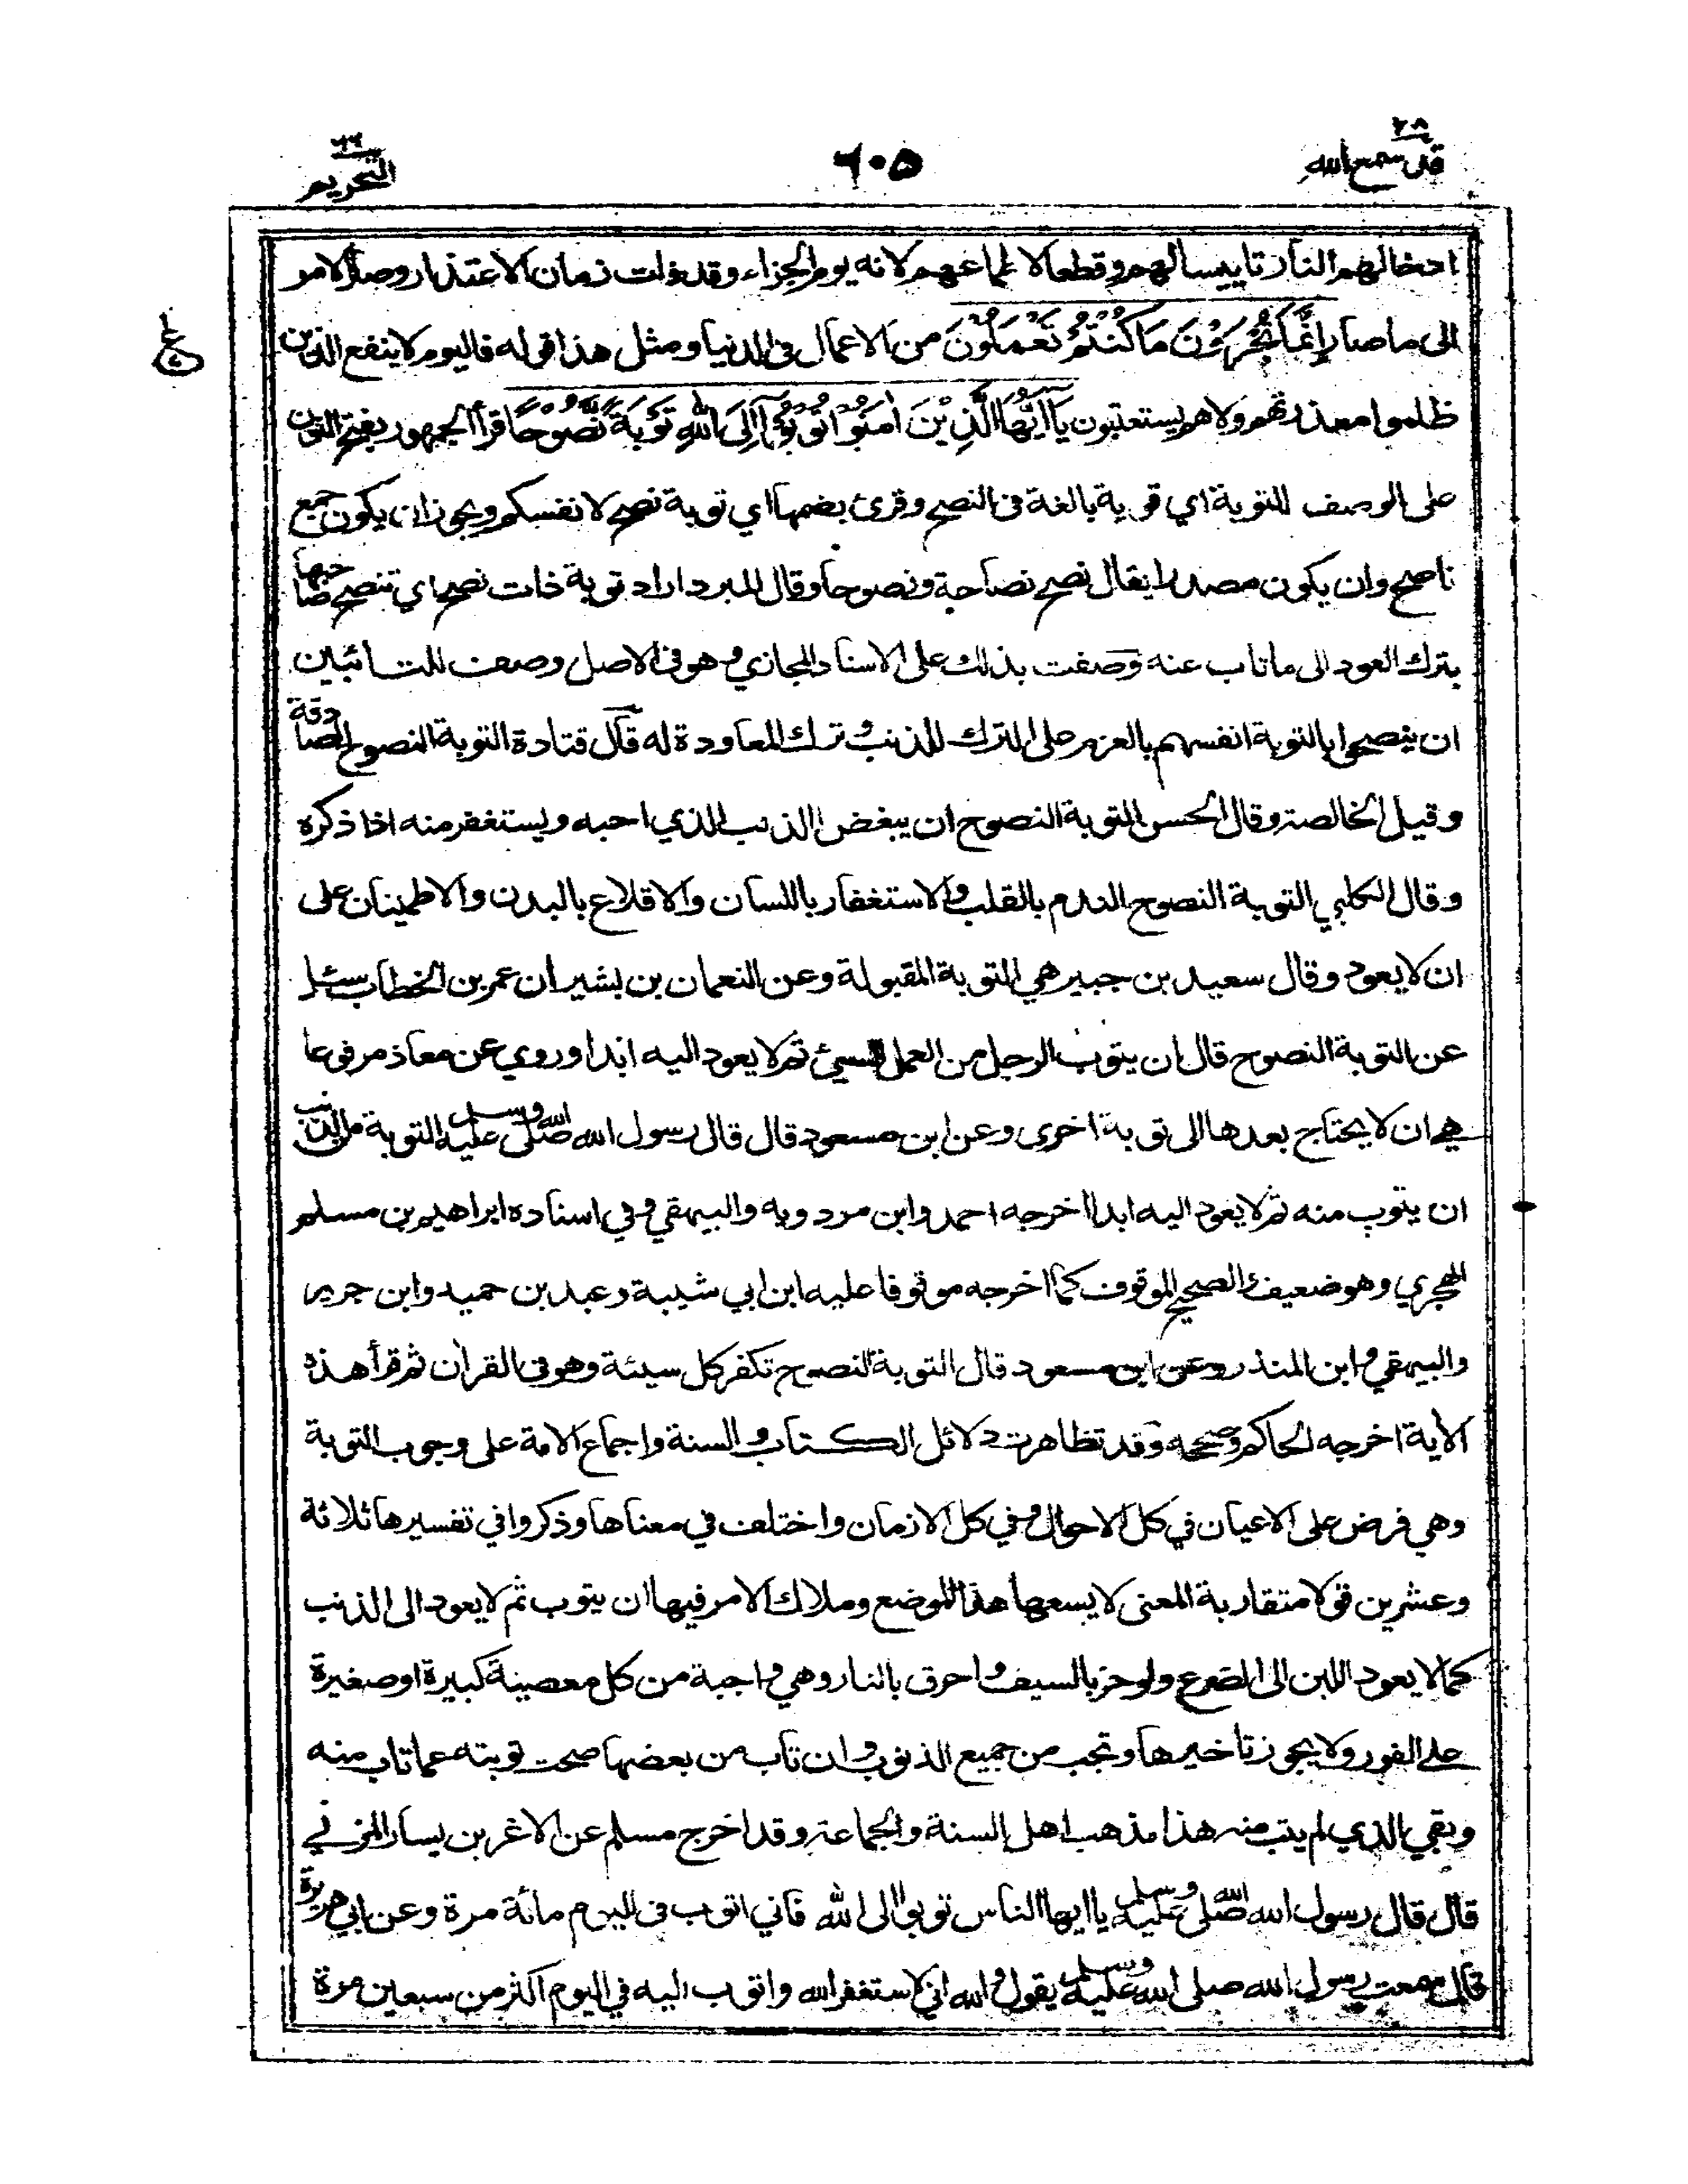 ٢٨
قد سمع الله
٦٠٥
٦٦
التحريم
ادخالهم النار تاييسا لهم وقطعا لاطماعهم لانه يوم الجزاء وقد فات زمان الاعتذار وصار الامر
الى ما صار إِنَّمَا تُجْزَوْنَ مَا كُنْتُمْ تَعْمَلُونَ من الاعمال في الدنيا ومثل هذا قوله فاليوم لا ينفع الذين
ظلموا معذرتهم ولا هم يستعتبون يَا أَيُّهَا الَّذِيْنَ اٰمَنُوْا تُوْبُوْا إِلَى اللهِ تَوْبَةً نَّصُوْحًا قرأ الجمهور بفتح النون
على الوصف للتوبة اي توبة بالغة في النصح وقرئ بضمها اي توبة نصح لانفسكم ويجوز ان يكون جمع
ناصح وان يكون مصدرا يقال نصح نصاحة ونصوحا وقال المبرد اراد توبة ذات نصح اي تنصح صاحبها
بترك العود الى ما تاب عنه وصفت بذلك على الاسناد المجازي وهو في الاصل وصف للتائبين
ان ينصحوا بالتوبة انفسهم بالعزم على الترك للذنب وترك المعاودة له قال قتادة التوبة النصوح الصادقة
وقيل الخالصة وقال الحسن التوبة النصوح ان يبغض الذنب الذي احبه ويستغفر منه اذا ذكره
وقال الكلبي التوبة النصوح الندم بالقلب والاستغفار باللسان والاقلاع بالبدن والاطمينان على
ان لا يعود وقال سعيد بن جبير هي التوبة المقبولة وعن النعمان بن بشير ان عمر بن الخطاب سئل
عن التوبة النصوح قال ان يتوب الرجل من العمل السيئ ثم لا يعود اليه ابدا وروي عن معاذ مرفوعا
هي ان لا يحتاج بعدها الى توبة اخرى وعن ابن مسعود قال قال رسول الله صلى الله عليه وسلم التوبة من الذنب
ان يتوب منه ثم لا يعود اليه ابدا اخرجه احمد وابن مردويه والبيهقي وفي اسناده ابراهيم بن مسلم
الهجري وهو ضعيف والصحيح الموقوف كما اخرجه موقوفا عليه ابن ابي شيبة وعبد بن حميد وابن جرير
والبيهقي وابن المنذر وعن ابن مسعود قال التوبة النصوح تكفر كل سيئة وهو في القران ثم قرأ هذه
الاية اخرجه الحاكم وصححه وقد تظاهرت دلائل الكتاب والسنة واجماع الامة على وجوب التوبة
وهي فرض على الاعيان في كل الاحوال وفي كل الازمان واختلف في معناها وذكروا في تفسيرها ثلاثة
وعشرين قولا متقاربة المعنى لا يسعها هذا الموضع وملاك الامر فيها ان يتوب ثم لا يعود الى الذنب
كما لا يعود اللبن الى الضرع ولو حز بالسيف واحرق بالنار وهي واجبة من كل معصية كبيرة او صغيرة
على الفور ولا يجوز تاخيرها وتجب من جميع الذنوب وان تاب من بعضها صحت توبته عما تاب منه
وبقي الذي لم يتب منه هذا مذهب اهل السنة والجماعة وقد اخرج مسلم عن الاغر بن يسار المزني
قال قال رسول الله صلى الله عليه وسلم يا ايها الناس توبوا الى الله فاني اتوب في اليوم مائة مرة وعن ابي هريرة
قال سمعت رسول الله صلى الله عليه وسلم يقول والله اني لاستغفر الله واتوب اليه في اليوم اكثر من سبعين مرة